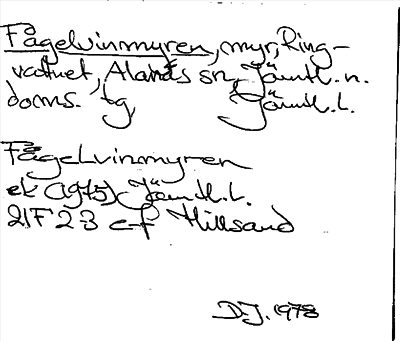 Fågelvinmyren, myr, Ring-
vattnet, Alanäs sn, Jämtl. n.
doms. tg, Jämtl. l.
Fågelvinmyren
ek (1975) Jämtl. l.
21F 2-3 e-f Hillsand
D.J. 1978